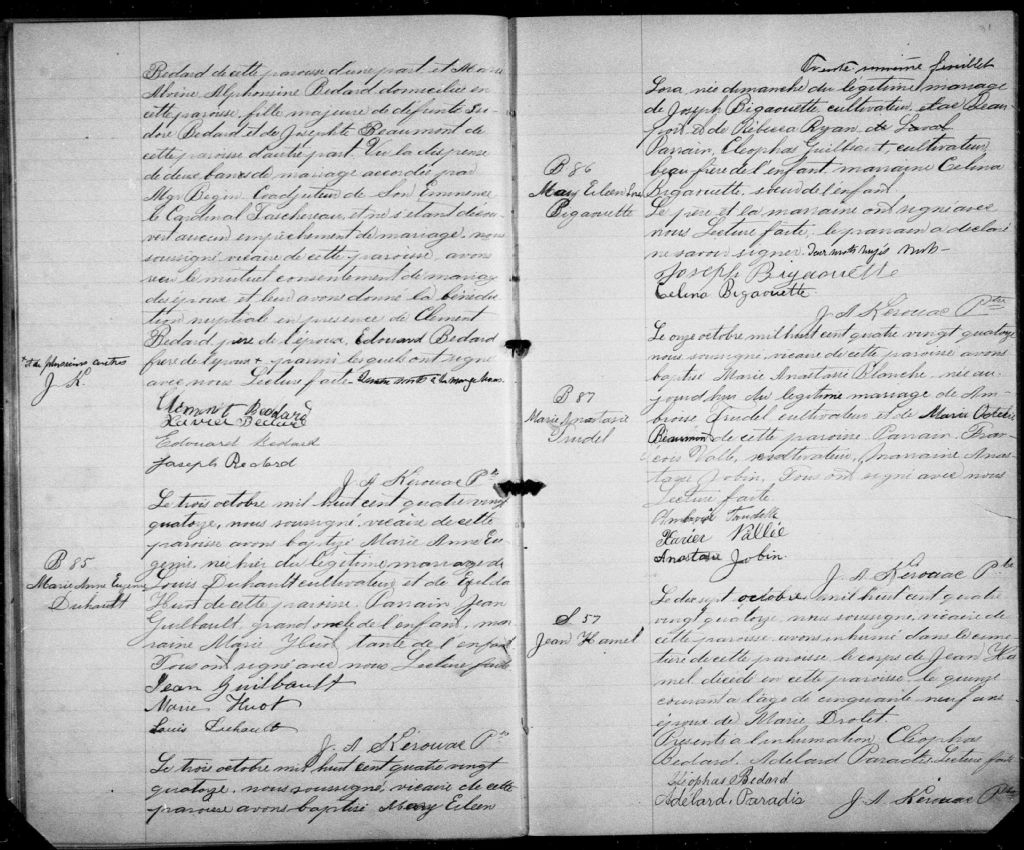 Bedard de cette paroisse d'une part et Marie
Alvine Alphonsine Bedard domiciliée en
cette paroisse, fille majeure de defunte Isi-
dore Bedard et de Josephte Beaumont de
cette paroisse d'autre part. Vu la dispense
de deux bancs de mariage accordée par
Mgr Begin Coadjuteur de Son Eminence
le Cardinal Taschereau, et ne s'etant décou-
vert aucun empêchement de mariage, nous
soussigné vicaire de cette paroisse, avons
reçu le mutuel consentement de mariage
des époux et leur avons donné la bénédic-
tion nuptiale en presence de Clement
Bedard pere de l'époux, Edouard Bedard
frere de l'époux + parmi lesquels ont signé
avec nous Lecture faite
+ et de plusieurs autres
J. K.
Clement Bedard
Xavier Bedard
Edouard Bedard
Joseph Bedard
J. A Kérouac Ptre
B 85
Marie Anne Eugenie
Duhault
Le trois octobre mil huit cent quatre vingt
quatorze, nous soussigné, vicaire de cette
paroisse avons baptizé Marie Anne Eu-
genie, née hier du legitime mariage de
Louis Duhault cultivateur et de Exilda
Huot de cette paroisse. Parrain Jean
Guilbault, grand oncle de l'enfant, mar-
raine Marie Huot, tante de l'enfant
Tous ont signé avec nous Lecture faite
Jean Guilbault
Marie Huot
Louis Duhault
J. A Kérouac Ptre
Le trois octobre mil huit cent quatre vingt
quatorze, nous soussigné, vicaire de cette
paroisse avons baptisé Mary Eileen
31
Trente unieme feuillet
B 86
Mary Eileen Lora
Bigaouette
Lora, née dimanche du légitime mariage
de Joseph Bigaouette cultivateur, et de Beau-
port et de Rébecca Ryan, de Laval
Parrain, Cleophas Guilbault cultivateur,
beau frère de l'enfant marraine Celina
Bigaouette, soeur de l'enfant
Le père et la marraine ont signé avec
nous Lecture faite, le parrain a déclaré
ne savoir signer. Deux mots rayés nuls
Joseph Bigaouette
Celina Bigaouette
J. A Kérouac Ptre
B 87
Marie Anastasie
Trudel
Le onze octobre mil huit cent quatre vingt quatorze
nous soussigné, vicaire de cette paroisse avons
baptisé Marie Anastasie Blanche, née au-
jourd'hui du legitime mariage de Am-
broise Trudel cultivateur et de Marie Octavie
Beaumont de cette paroisse Parrain Fran-
çois Vallé, cultivateur, marraine Anas-
tasie Jobin, Tous ont signé avec nous
Lecture faite
Ambroise Trudelle
Xavier Vallée
Anastasie Jobin
J. A Kérouac Ptre
S 57
Jean Hamel
Le dix sept octobre mil huit cent quatre
vingt quatorze, nous soussigné, vicaire de
cette paroisse, avons inhumé dans le cime-
tiere de cette paroisse le corps de Jean Ha-
mel décédé en cette paroisse le quinze
courant à l'âge de cinquante neuf ans
époux de Marie Drolet.
Présents à l'inhumation, Cléophas
Bedard, Adelard Paradis Lecture faite
Cléophas Bedard
Adélard Paradis
J. A Kérouac Ptre